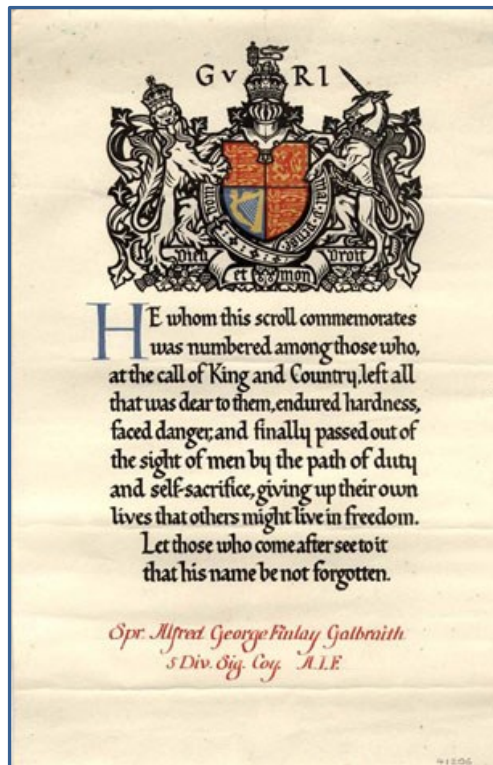 G V RI
Dieu et mon Droit
HE whom this scroll commemorates
was numbered among those who,
at the call of King and Country, left all
that was dear to them, endured hardness,
faced danger, and finally passed out of
the sight of men by the path of duty
and self-sacrifice, giving up their own
lives that others might live in freedom.
Let those who come after see to it
that his name be not forgotten.
Spr. Alfred George Finlay Galbraith
5 Div. Sig. Coy. A.I.F.